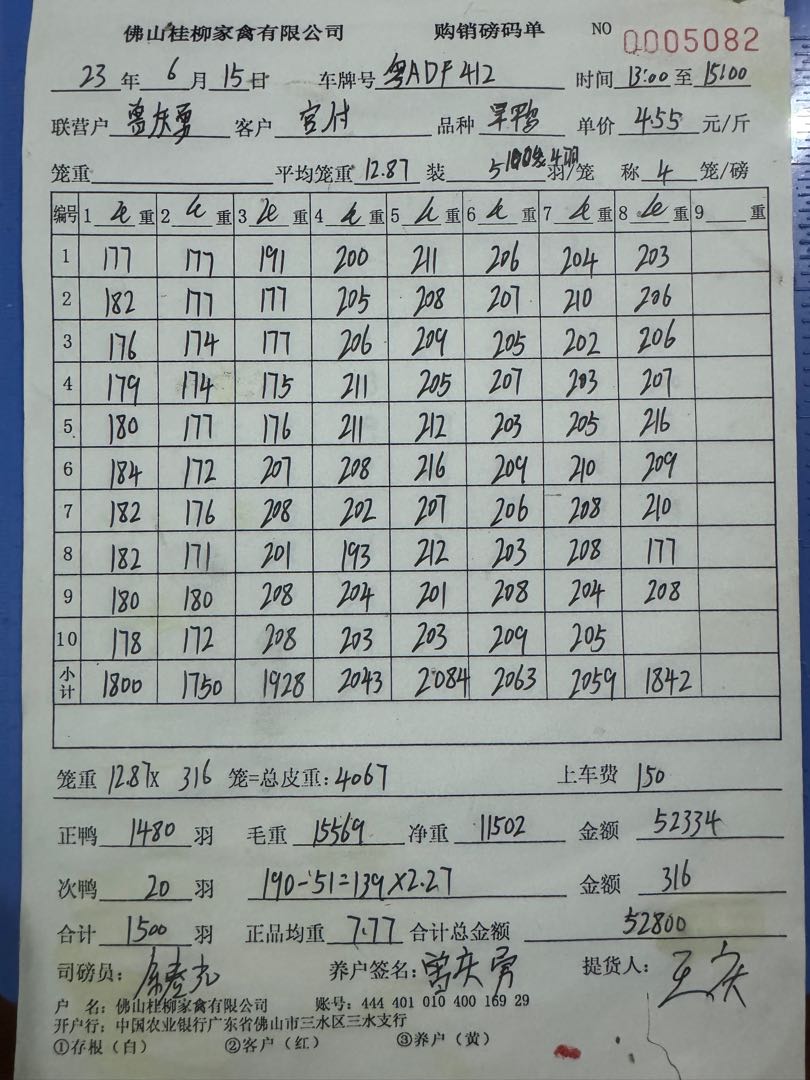 佛山桂柳家禽有限公司 购销磅码单 NO 0005082
23 年 6 月 15 日 车牌号 粤ADF412 时间 13:00 至 15:00
联营户 曾庆勇 客户 宫付 品种 旱鸭 单价 4.55 元/斤
笼重 平均笼重 12.87 装 5 羽/笼 称 4 笼/磅
编号 1 毛 重 2 毛 重 3 毛 重 4 毛 重 5 毛 重 6 毛 重 7 毛 重 8 毛 重 9 重
1 177 177 191 200 211 206 204 203
2 182 177 177 205 208 207 210 206
3 176 174 177 206 209 205 202 206
4 179 174 175 211 205 207 203 207
5 180 177 176 211 212 203 205 216
6 184 172 207 208 216 209 210 209
7 182 176 208 202 207 206 208 210
8 182 171 201 193 212 203 208 177
9 180 180 208 204 201 208 204 208
10 178 172 208 203 203 209 205
小计 1800 1750 1928 2043 2084 2063 2059 1842
笼重 12.87 X 316 笼=总皮重:4067 上车费 150
正鸭 1480 羽 毛重 15569 净重 11502 金额 52334
次鸭 20 羽 190-51=139×2.27 金额 316
合计 1500 羽 正品均重 7.77 合计总金额 52800
司磅员: 养户签名:曾庆勇 提货人:王庆
户 名:佛山桂柳家禽有限公司 账号:444 401 010 400 169 29
开户行:中国农业银行广东省佛山市三水区三水支行
①存根(白) ②客户(红) ③养户(黄)